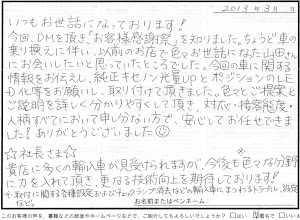 2013年3月 日
いつもお世話になっております!
今回、DMを頂き「お客様感謝祭」を知りました。ちょうど車の
乗り換えに伴い、以前のお店で色々お世話になった山田さん
にお会いしたいと思っていたところでした。今回の車に関する
情報をお伝えし、純正キセノン光量UPとポジションのLE
D化等をお願いし、取り付けて頂きました。色々とご提案と
ご説明を詳しく分かりやすくして頂き、対応・接客態度・
人柄すべてにおいて申し分ない方で、安心してお任せできま
した!ありがとうございました
☆社長さま☆
貴店に多くの輸入車が見受けられますが、今後も色々な分野
に力を入れて頂き、更なる技術向上を期待しております!
※取付に関する各種設定およびランプ消灯などの輸入車にまつわるトラブル、設定
など。
お名前またはペンネーム
このお客様の声を、書籍などの他紙やホームページなどで、ご紹介してもよろしいでしょうか?
はい
いいえ